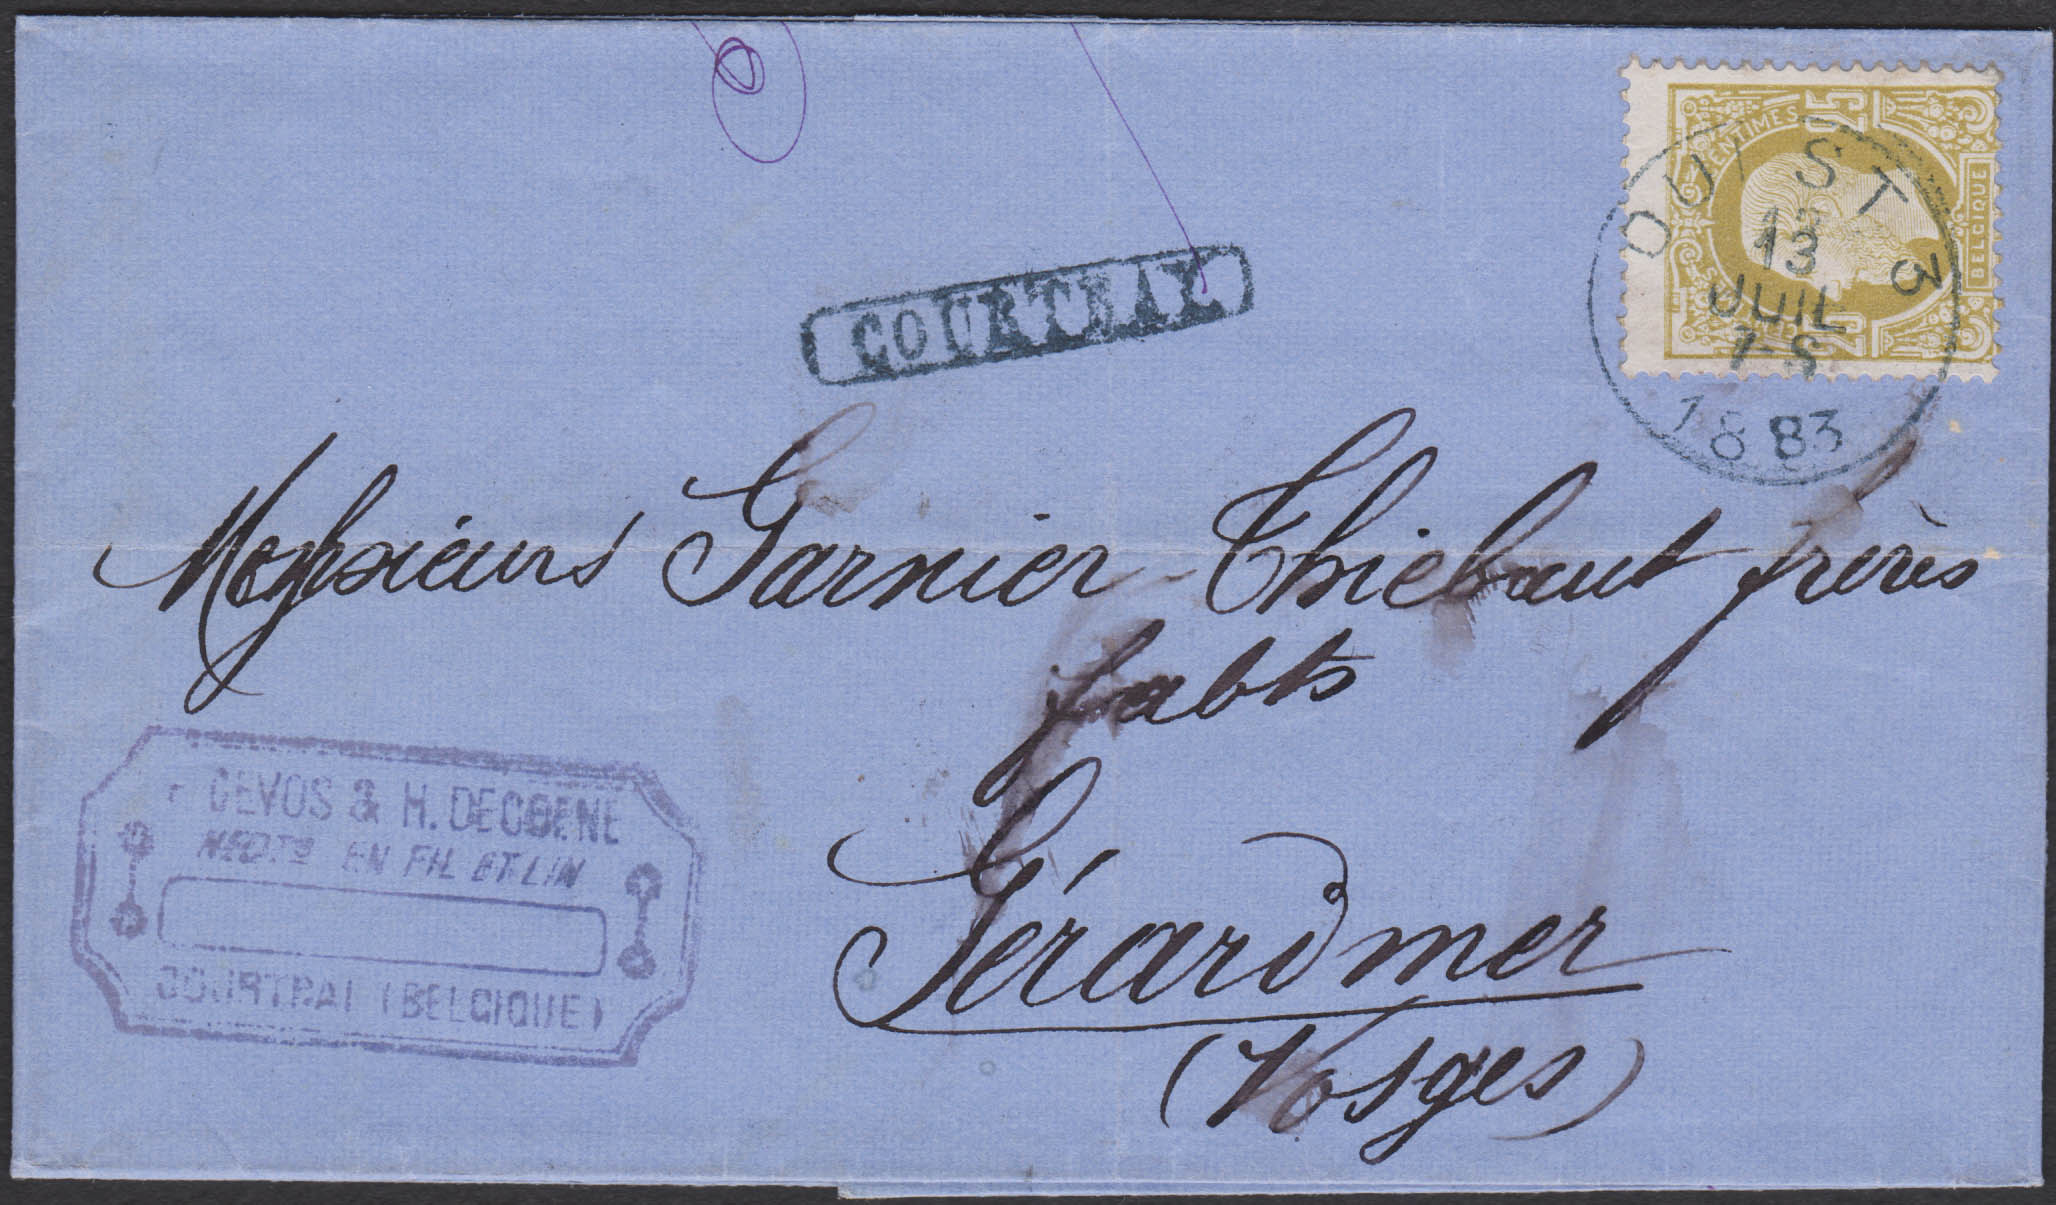 25 CENTIMES 25
BELGIQUE
OUEST 3
13
JUIL
7-S
1883
COURTRAY
Messieurs Garnier Thiebaut frères
fabts
Gérardmer
(Vosges)
DEVOS & H. DECOENE
NEGTS EN FIL ET LIN
COURTRAI (BELGIQUE)